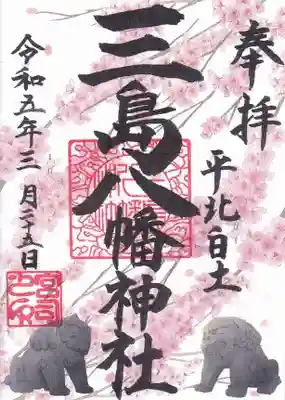 奉拝
平北白土
三島八幡神社
令和五年三月二十五日